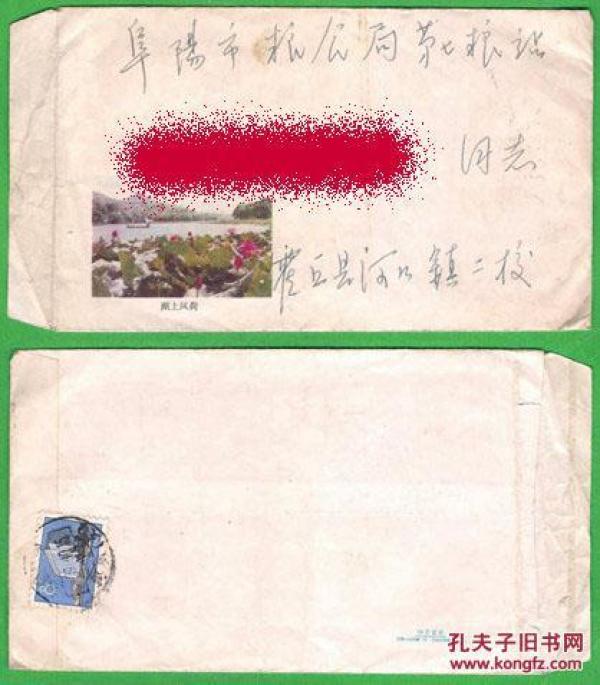 阜陽市粮食局第七粮站
同志
湖上风荷
霍丘县河口镇二校
孔夫子旧书网
www.kongfz.com